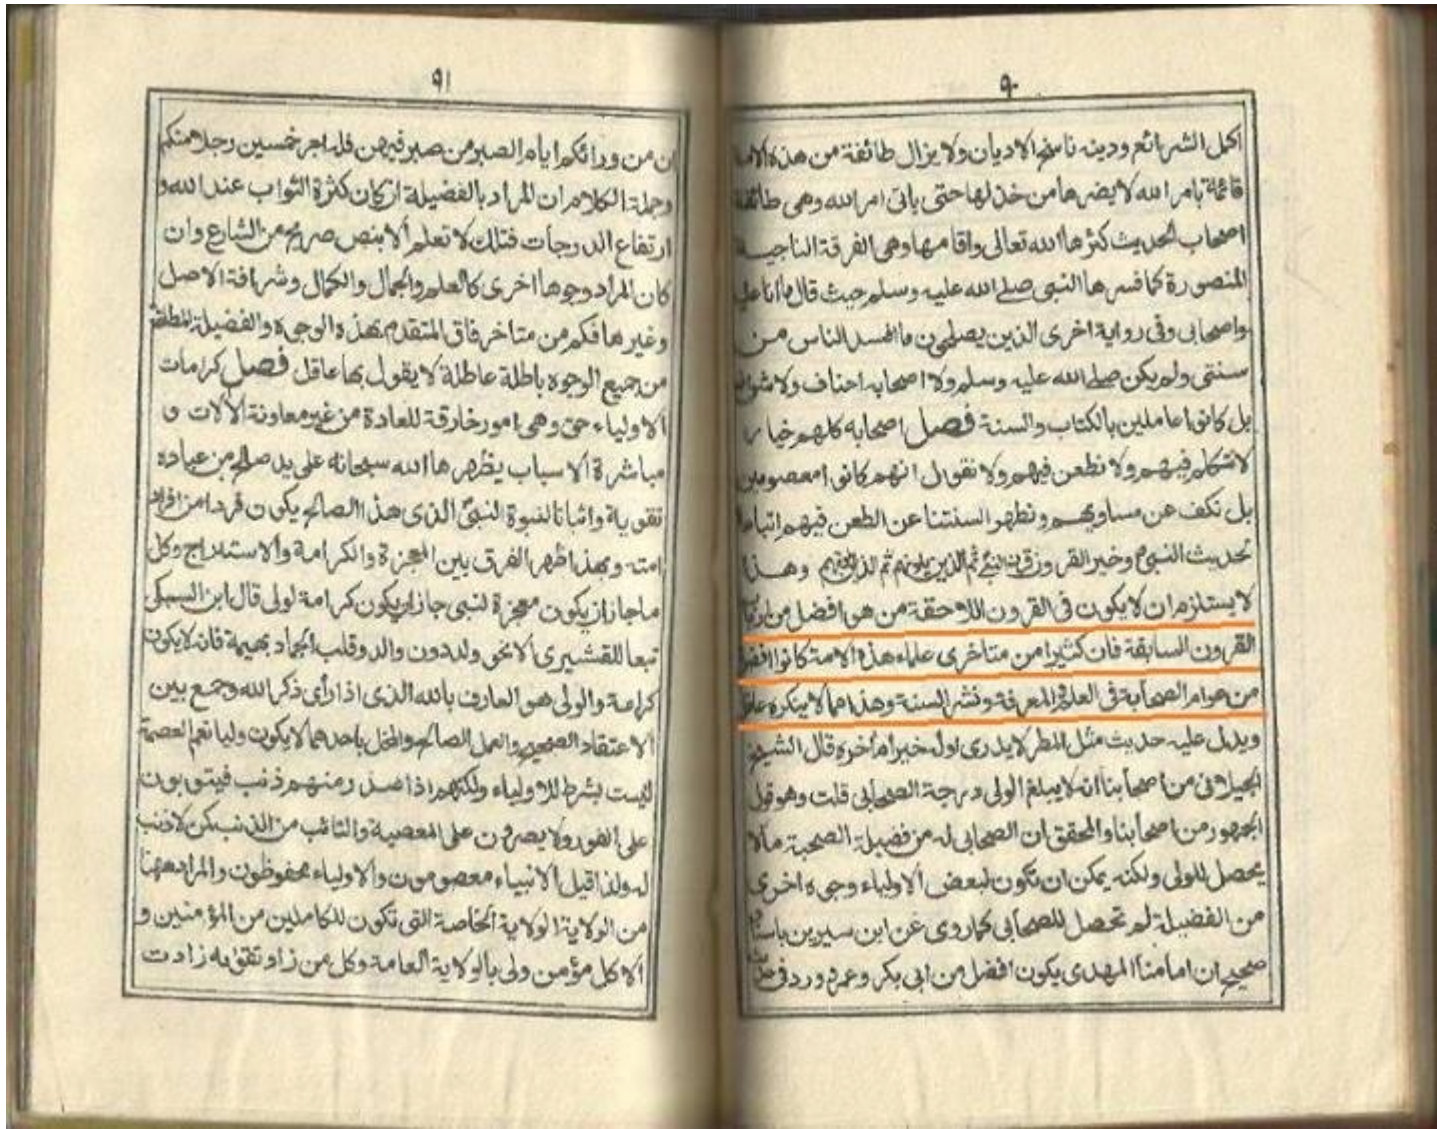 ٩٠
اكمل الشرائع ودينه ناسخ الاديان ولا يزال طائفة من هذه الامة
قائمة بامر الله لا يضرها من خذلها حتى ياتى امر الله وهى طائفة
اصحاب الحديث كثرها الله تعالى واقامها وهى الفرقة الناجية
المنصورة كما فسرها النبى صلى الله عليه وسلم حيث قال ما انا عليه
واصحابى وفى رواية اخرى الذين يصلحون ما افسد الناس من
سنتى ولم يكن صلى الله عليه وسلم ولا اصحابه احناف ولا شوافع
بل كانوا عاملين بالكتاب والسنة فصل اصحابه كلهم خيار
لا نتكلم فيهم ولا نطعن فيهم ولا نقول انهم كانوا معصومين
بل نكف عن مساويهم ونطهر السنتنا عن الطعن فيهم اتباعا
لحديث النبى وخير القرون قرن النبى ثم الذين يلونهم ثم الذين يلونهم وهذا
لا يستلزم ان لا يكون فى القرون اللاحقة من هو افضل من ارباب
القرون السابقة فان كثيرا من متاخرى علماء هذه الامة كانوا افضل
من عوام الصحابة فى العلم والمعرفة ونشر السنة وهذا مما لا ينكره عاقل
ويدل عليه حديث مثل المطر لا يدرى اوله خير ام اخره قال الشيخ
الجيلانى من اصحابنا انه لا يبلغ الولى درجة الصحابى قلت وهو قول
الجمهور من اصحابنا والمحقق ان الصحابى له من فضيلة الصحبة مالا
يحصل للولى ولكنه يمكن ان تكون لبعض الاولياء وجوه اخرى
من الفضيلة لم تحصل للصحابى كما روى عن ابن سيرين باسناد
صحيح ان امامنا المهدى يكون افضل من ابى بكر وعمر وورد فى حديث
٩١
ان من ورائكم ايام الصبر من صبر فيهن فله اجر خمسين رجلا منكم
وجملة الكلام ان المراد بالفضيلة ان كان كثرة الثواب عند الله و
ارتفاع الدرجات فتلك لا تعلم الا بنص صريح من الشارع وان
كان المراد وجوها اخرى كالعلم والجمال والكمال وشرافة الاصل
وغيرها فكم من متاخر فاق المتقدم بهذه الوجوه والفضيلة المطلقة
من جميع الوجوه باطلة عاطلة لا يقول بها عاقل فصل كرامات
الاولياء حق وهى امور خارقة للعادة من غير معاونة الالات و
مباشرة الاسباب يظهرها الله سبحانه على يد صالح من عباده
تقوية واثباتا لنبوة النبى الذى هذا الصالح يكون فردا من افراد
امته وبهذا ظهر الفرق بين المعجزة والكرامة والاستدراج وكل
ما جاز ان يكون معجزة لنبى جاز ان يكون كرامة لولى قال ابن السبكى
تبعا للقشيرى الا نحو ولد دون والد وقلب الجماد بهيمة فانه لا يكون
كرامة والولى هو العارف بالله الذى اذا راى ذكر الله وجمع بين
الاعتقاد الصحيح والعمل الصالح والمخل باحدهما لا يكون وليا نعم العصمة
ليست بشرط للاولياء ولكنهم اذا صدر منهم ذنب فيتوبون
على الفور ولا يصرون على المعصية والتائب من الذنب كمن لا ذنب
له ولذا قيل الانبياء معصومون والاولياء محفوظون والمراد ههنا
من الولاية الولاية الخاصة التى تكون للكاملين من المؤمنين و
الا كل مؤمن ولى بالولاية العامة وكل من زاد تقواه زادت